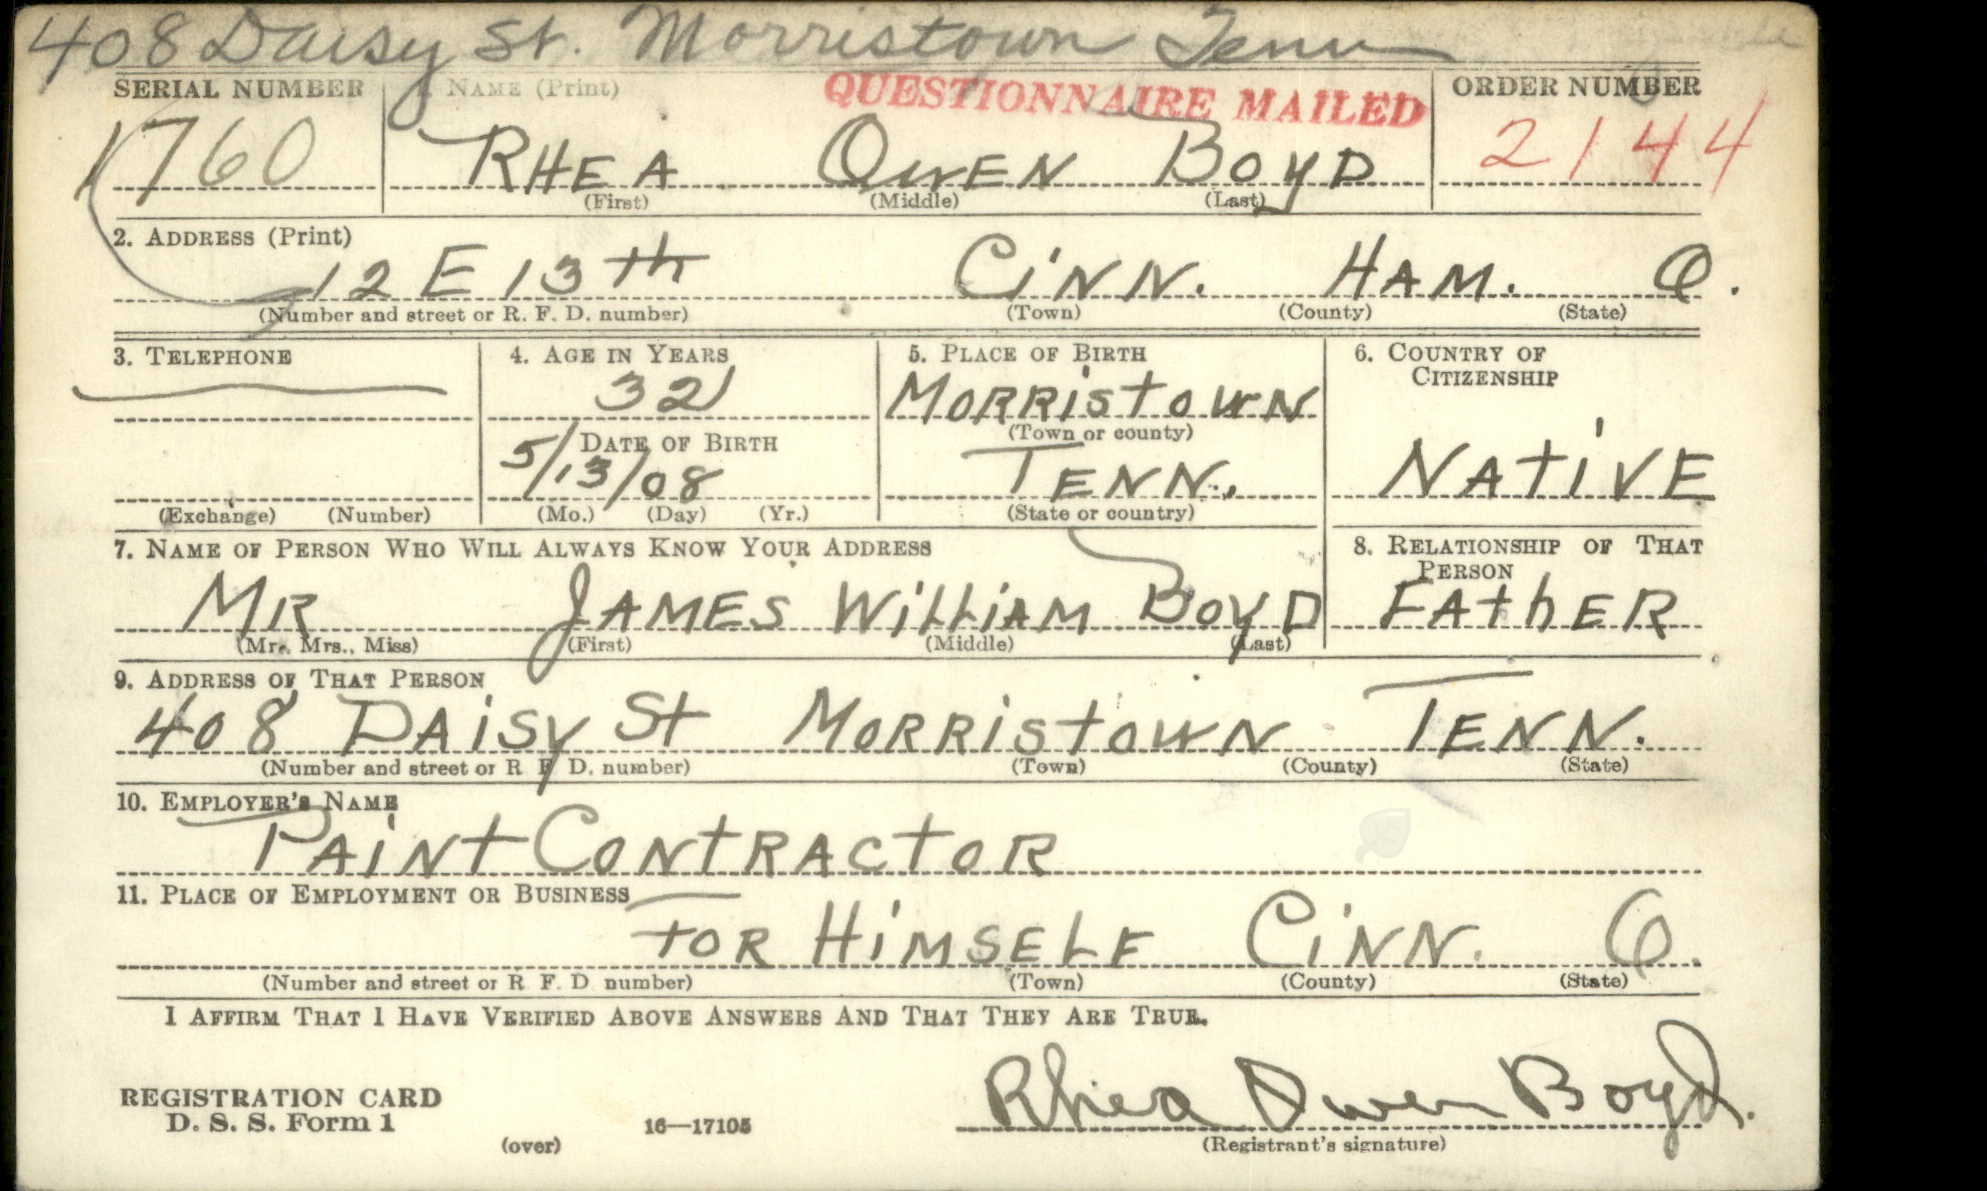 408 Daisy St. Morristown Tenn
SERIAL NUMBER 1. NAME (Print) QUESTIONNAIRE MAILED ORDER NUMBER
1760 RHEA OWEN BOYD 2144
(First) (Middle) (Last)
2. ADDRESS (Print)
12 E 13th CINN. HAM. O.
(Number and street or R. F. D. number) (Town) (County) (State)
3. TELEPHONE 4. AGE IN YEARS 5. PLACE OF BIRTH 6. COUNTRY OF
CITIZENSHIP
32 MORRISTOWN
(Town or county)
DATE OF BIRTH
5/13/08 TENN. NATIVE
(Exchange) (Number) (Mo.) (Day) (Yr.) (State or country)
7. NAME OF PERSON WHO WILL ALWAYS KNOW YOUR ADDRESS 8. RELATIONSHIP OF THAT
PERSON
MR JAMES WILLIAM BOYD FATHER
(Mr., Mrs., Miss) (First) (Middle) (Last)
9. ADDRESS OF THAT PERSON
408 DAISY St MORRISTOWN TENN.
(Number and street or R F D. number) (Town) (County) (State)
10. EMPLOYER'S NAME
PAINT CONTRACTOR
11. PLACE OF EMPLOYMENT OR BUSINESS
FOR HIMSELF CINN. O.
(Number and street or R F. D number) (Town) (County) (State)
I AFFIRM THAT I HAVE VERIFIED ABOVE ANSWERS AND THAT THEY ARE TRUE.
Rhea Owen Boyd.
REGISTRATION CARD
D. S. S. Form 1 16—17105
(over) (Registrant's signature)